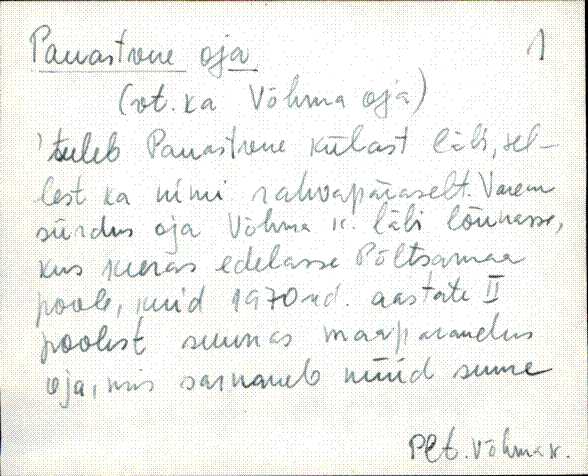 Panastvere oja 1
(vt. ka Võhma oja)
tuleb Panastvere külast läbi, sel-
lest ka nimi rahvapäraselt. Varem
siirdus oja Võhma k. läbi lõunasse,
kus keeras edelasse Põltsamaa
poole, kuid 1970nd. aastate II
poolest suunas maaparandus
oja, mis sarnaneb nüüd suure
Plt. Võhma k.